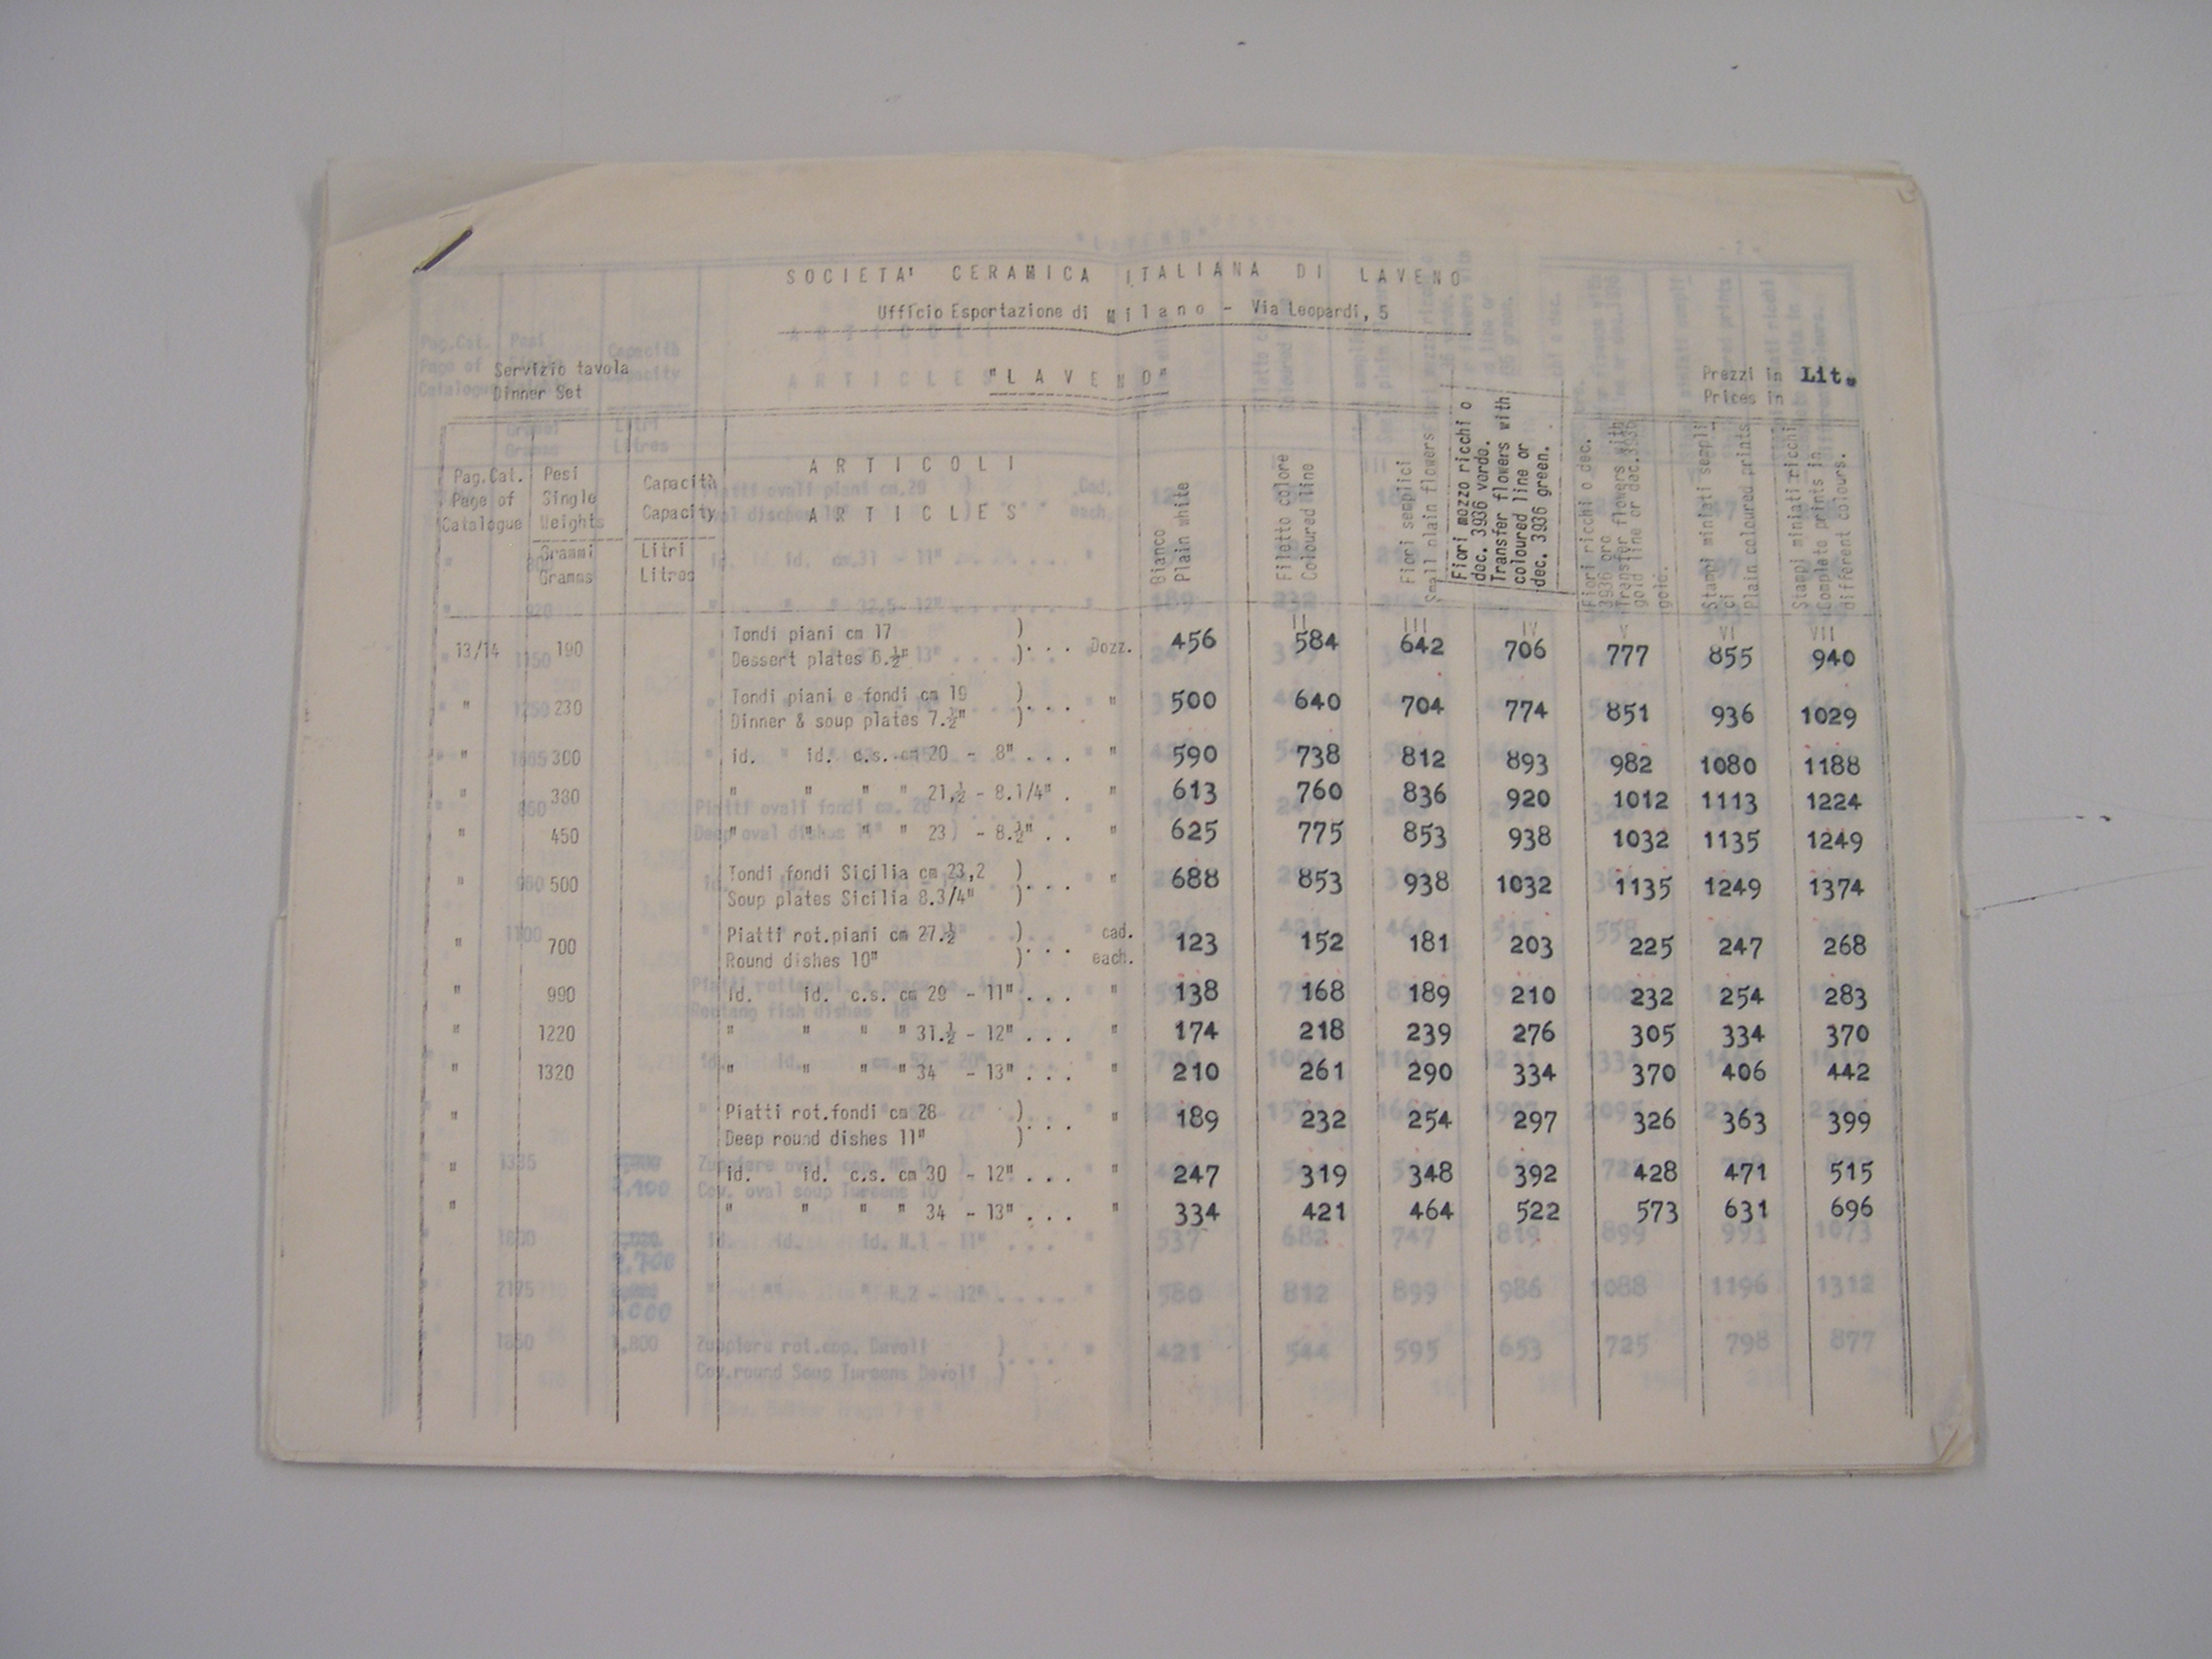 SOCIETA' CERAMICA ITALIANA DI LAVENO
Ufficio Esportazione di Milano - Via Leopardi, 5
Servizio tavola
Dinner Set
"LAVENO"
Prezzi in Lit.
Prices in
Pag.Cat.
Page of
Catalogue
Pesi
Single
Weights
Grammi
Gramms
Capacità
Capacity
Litri
Litres
ARTICOLI
ARTICLES
Bianco
Plain white
Filetto colore
Coloured line
II
Fiori semplici
Small plain flowers
III
Fiori mezzo ricchi o
dec. 3936 verde.
Transfer flowers with
coloured line or
dec. 3936 green.
IV
Fiori ricchi o dec.
3936 oro
Transfer flowers with
gold line or dec.3936
gold.
V
Stampi miniati sempli
ci
Plain coloured prints
VI
Stampi miniati ricchi
Complete prints in
different colours.
VII
13/14 190 Tondi piani cm 17 ) ... Dozz. 456 584 642 706 777 855 940
Dessert plates 6.½" )
" 230 Tondi piani e fondi cm 19 ) ... " 500 640 704 774 851 936 1029
Dinner & soup plates 7.½" )
" 300 id. id. c.s. cm 20 - 8" ... " 590 738 812 893 982 1080 1188
" 330 " " " " 21,½ - 8.1/4" . " 613 760 836 920 1012 1113 1224
" 450 " " " " 23 - 8.½" .. " 625 775 853 938 1032 1135 1249
" 500 Tondi fondi Sicilia cm 23,2 ) ... " 688 853 938 1032 1135 1249 1374
Soup plates Sicilia 8.3/4" )
" 700 Piatti rot.piani cm 27.½ ) ... cad. 123 152 181 203 225 247 268
Round dishes 10" ) each.
" 990 id. id. c.s. cm 29 - 11" ... " 138 168 189 210 232 254 283
" 1220 " " " " 31.½ - 12" ... " 174 218 239 276 305 334 370
" 1320 " " " " 34 - 13" ... " 210 261 290 334 370 406 442
" Piatti rot.fondi cm 28 ) ... " 189 232 254 297 326 363 399
Deep round dishes 11" )
" id. id. c.s. cm 30 - 12" ... " 247 319 348 392 428 471 515
" " " " " 34 - 13" ... " 334 421 464 522 573 631 696